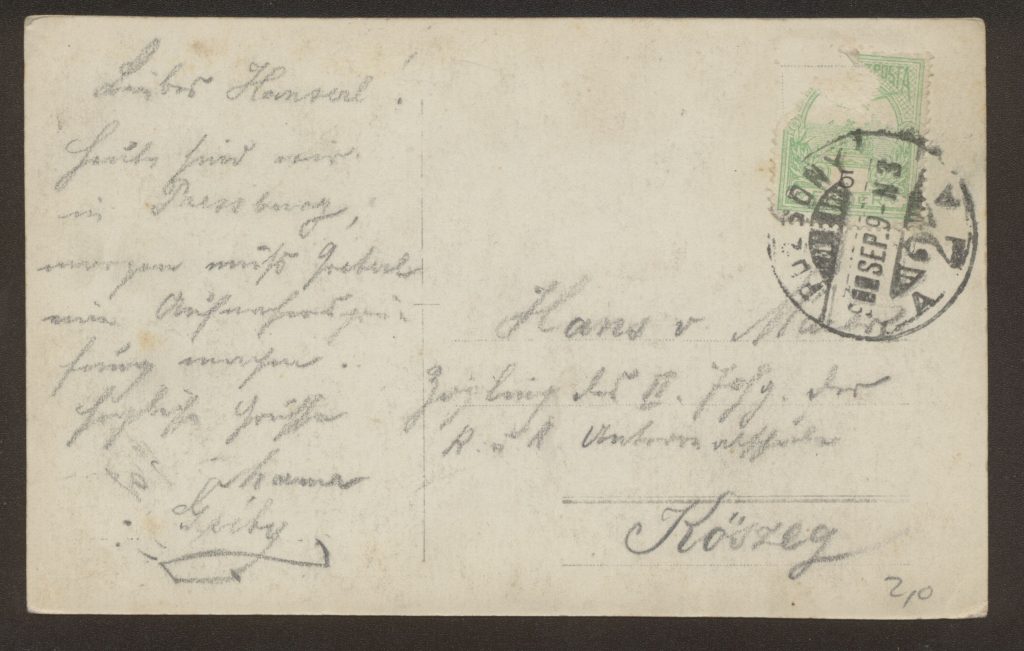 Liebes Hanserl!
Heute sind wir
in Pressburg,
morgen muß Greterl
die Aufnahmsprü-
fung machen.
Herzliche Grüsse
Mama
POSTA
POZSONY 1
911 SEP. 9 - N3
A
2
Hans v
Zögling des II. Jahrg. der
K. u. K Unterrealschule
Kőszeg
2,0